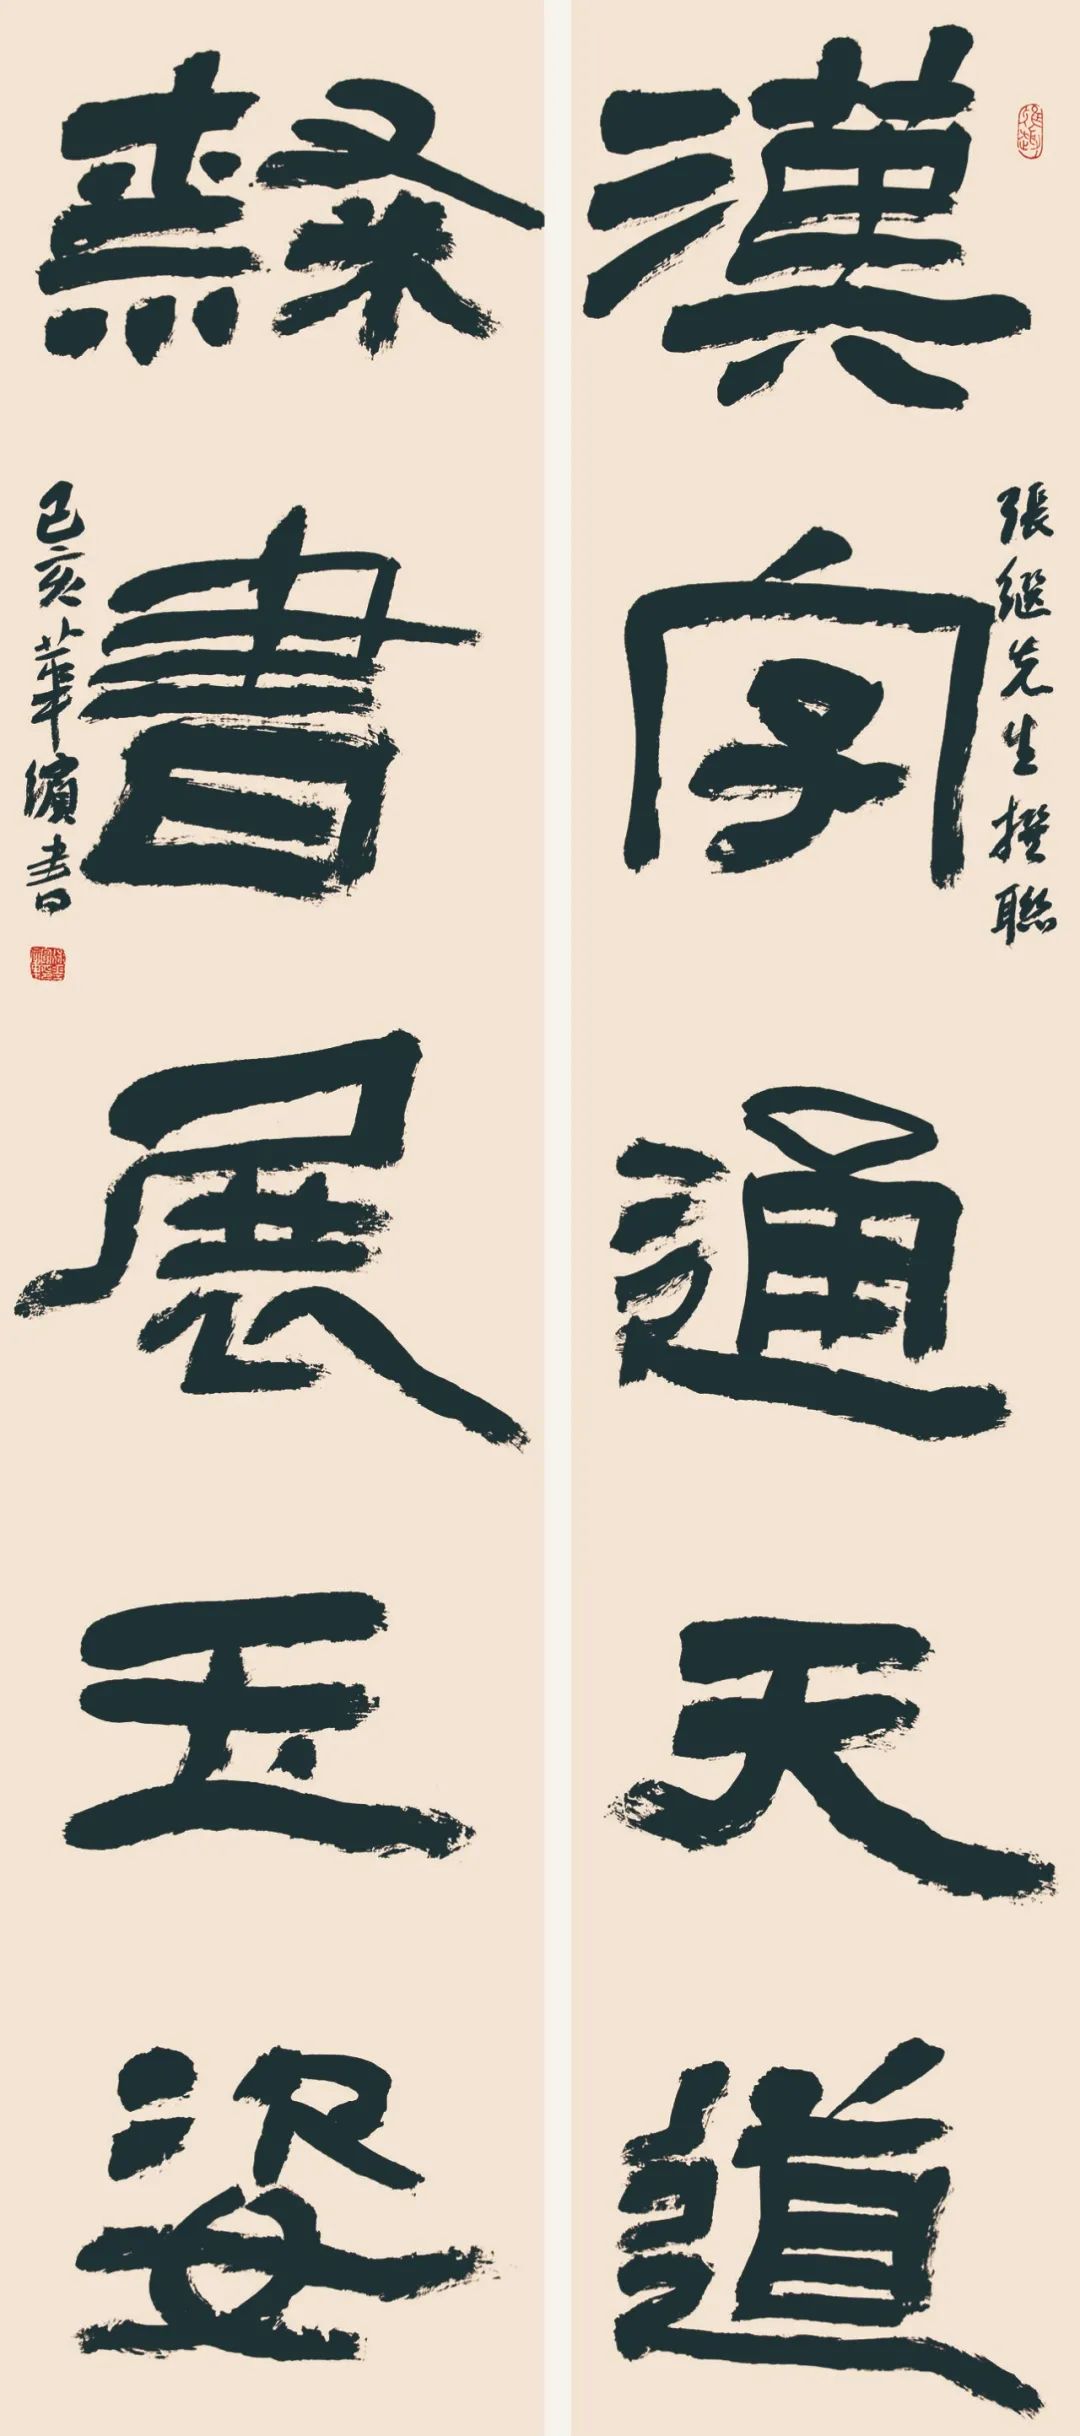 漢字通天道
張繼先生撰聯
隸書展玉姿
己亥華繽書